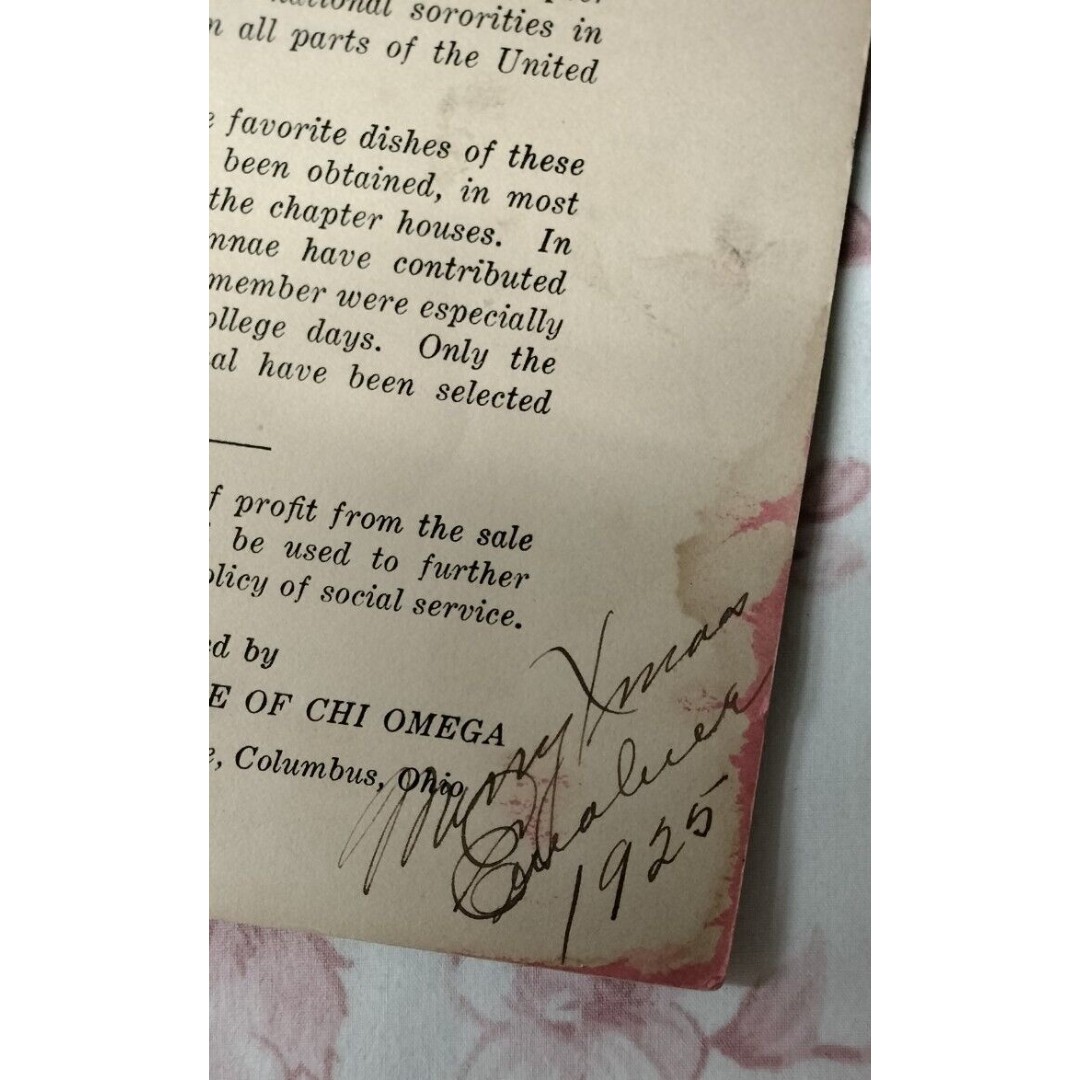 national sororities in
n all parts of the United
favorite dishes of these
been obtained, in most
the chapter houses. In
nnae have contributed
member were especially
ollege days. Only the
al have been selected
f profit from the sale
be used to further
olicy of social service.
ed by
E OF CHI OMEGA
e, Columbus, Ohio
Merry Xmas
1925